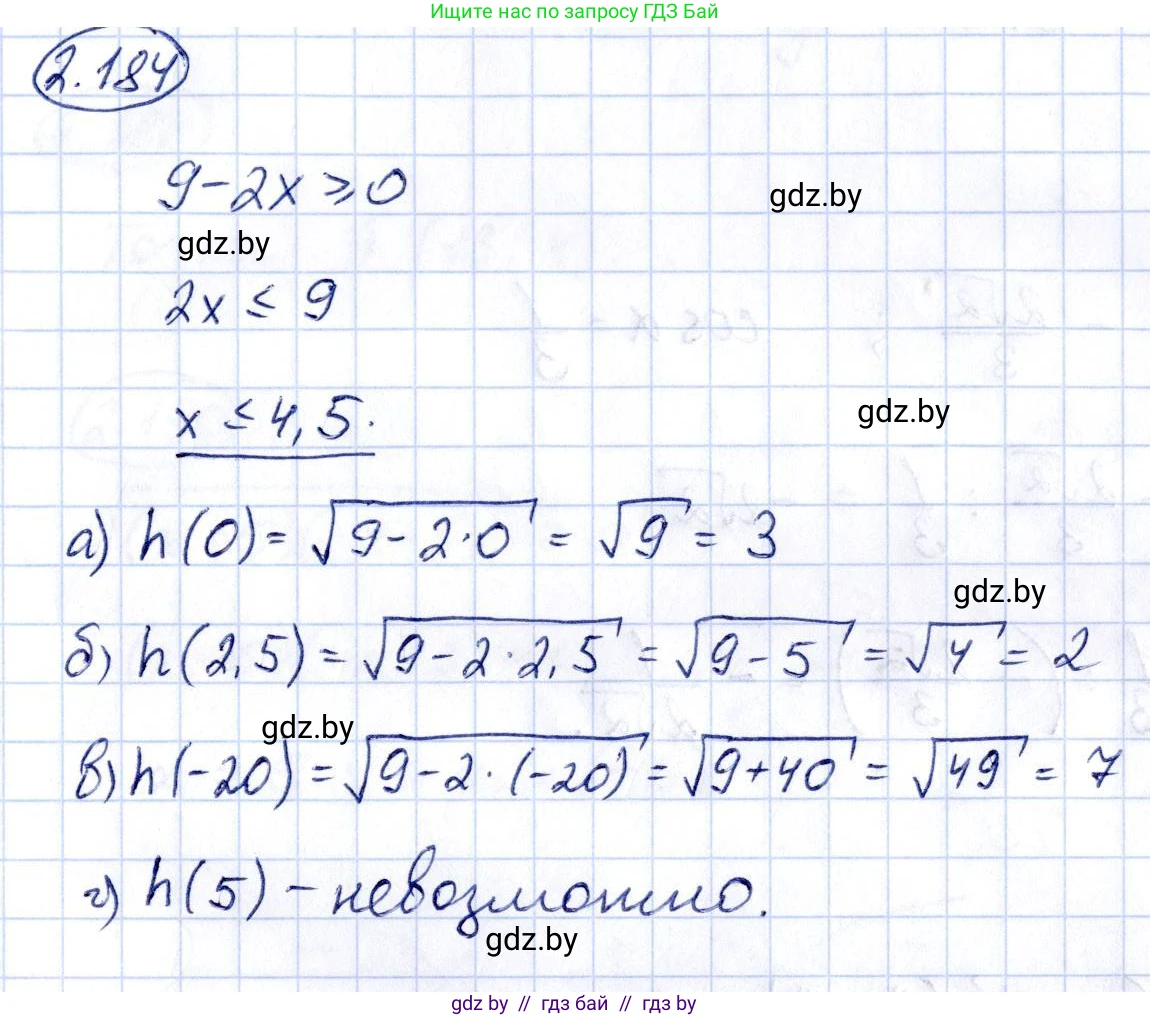 Ищите нас по запросу ГДЗ Бай
2.184
9-2x ≥ 0
gdz.by
gdz.by
2x ≤ 9
x ≤ 4,5.
gdz.by
а) h(0) = √(9-2·0) = √9 = 3
gdz.by
б) h(2,5) = √(9-2·2,5) = √(9-5) = √4 = 2
gdz.by
в) h(-20) = √(9-2·(-20)) = √(9+40) = √49 = 7
г) h(5) - невозможно.
gdz.by
gdz by // гдз бай // гдз by